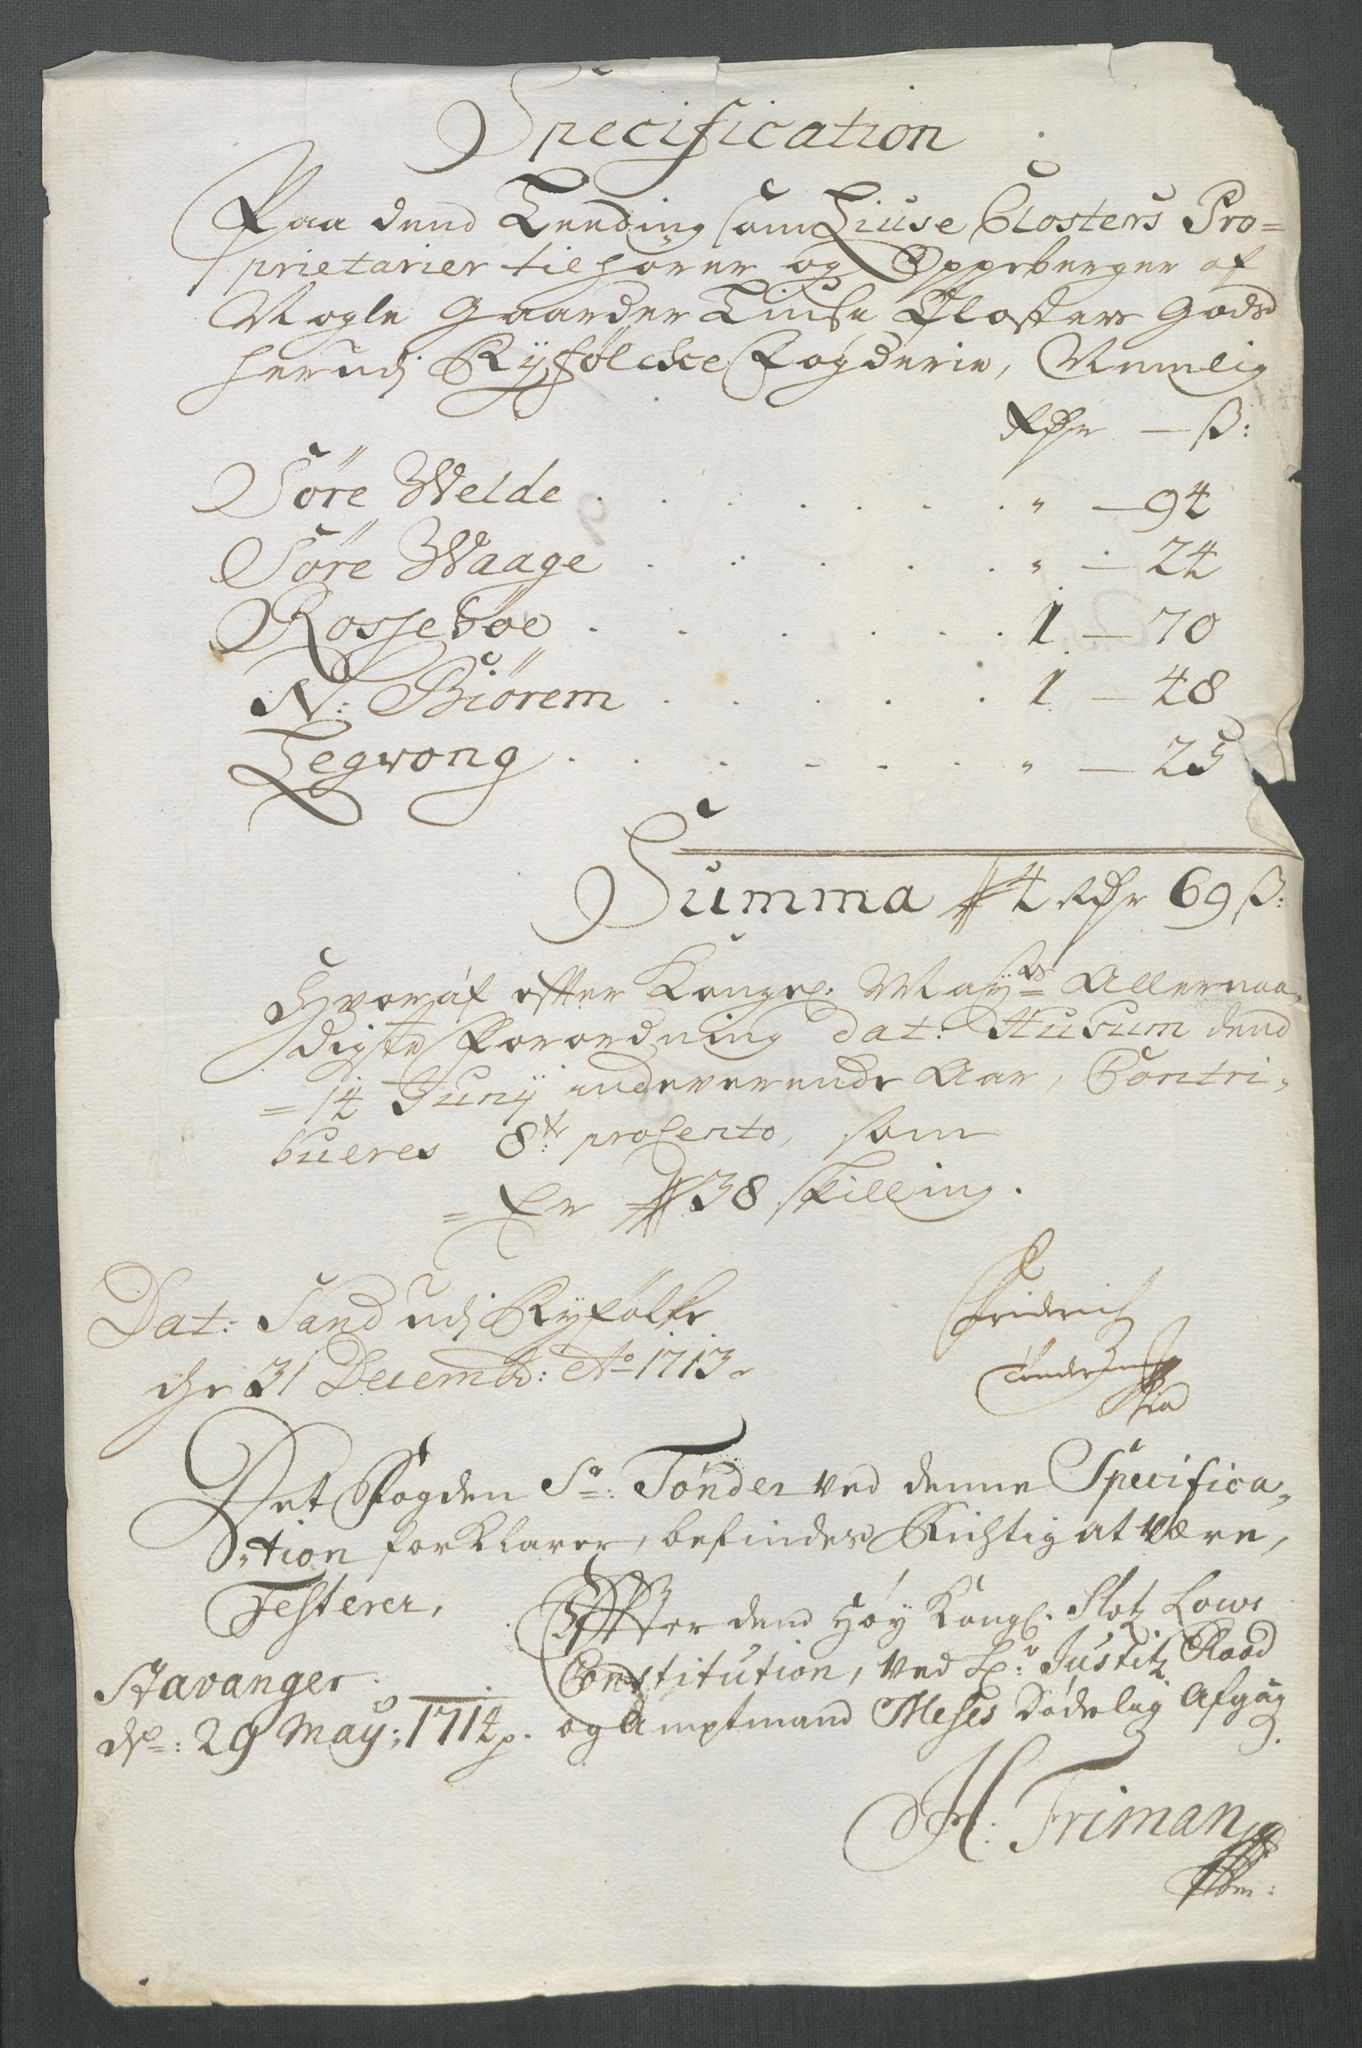 Specification
Paa dend Tending som Liuse Closters Pro=
prietarier tilhører og Oppeberger af
Nogle Gaarder Liuse Closters Gods
herudj Ryfølcke Fogderie, Nemlig
Rdr — ß:
Søre Welde . . . . . . . „ — 94
Søre Waage . . . . . . „ — 24
Rossebøe . . . . . . . 1 — 70
N: Biørem . . . . . 1 — 48
Legvong . . . . . . . „ — 25
Summa 4 Rdr 69 ß:
Hvoraf efter Kongel. Mayts Allernaa=
digste Forordning dat: Husum dend
= 14 Juny indeverende Aar, Contri=
bueres 8te procento, som
= Er 38 skilling.
Dat: Sand udj Ryfølke
de 31 Decembr: Ao 1713.
Friderich
Tønder
Det Fogden Sr: Tonder ved denne Specifica=
tion forklarer, befindes Richtig at være,
Testerer,
Effter dend Høy Kongl. Slotz Lows
Constitution, ved Sr. Justitz Raad
og Amptmand Meses Dødelig Afgang.
Stavanger
dn: 29 May: 1714.
H: Friman